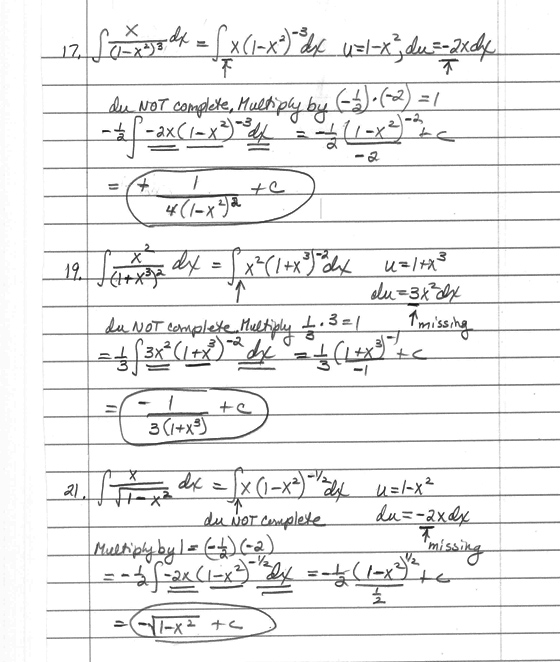 17. ∫ x/(1-x²)³ dx = ∫ x(1-x²)⁻³ dx u=1-x², du=-2xdx
du NOT complete, Multiply by (-1/2)·(-2) = 1
-1/2 ∫ -2x(1-x²)⁻³ dx = -1/2 (1-x²)⁻²/-2 + C
= + 1/(4(1-x²)²) + C
19. ∫ x²/(1+x³)² dx = ∫ x²(1+x³)⁻² dx u=1+x³
du=3x²dx
du NOT complete, Multiply 1/3 · 3 = 1 ↑ missing
= 1/3 ∫ 3x²(1+x³)⁻² dx = 1/3 (1+x³)⁻¹/-1 + C
= - 1/(3(1+x³)) + C
21. ∫ x/√(1-x²) dx = ∫ x(1-x²)^(-1/2) dx u=1-x²
du NOT complete du=-2xdx
Multiply by 1 = (-1/2)(-2) ↑ missing
= -1/2 ∫ -2x(1-x²)^(-1/2) dx = -1/2 (1-x²)^(1/2)/(1/2) + C
= -√(1-x²) + C